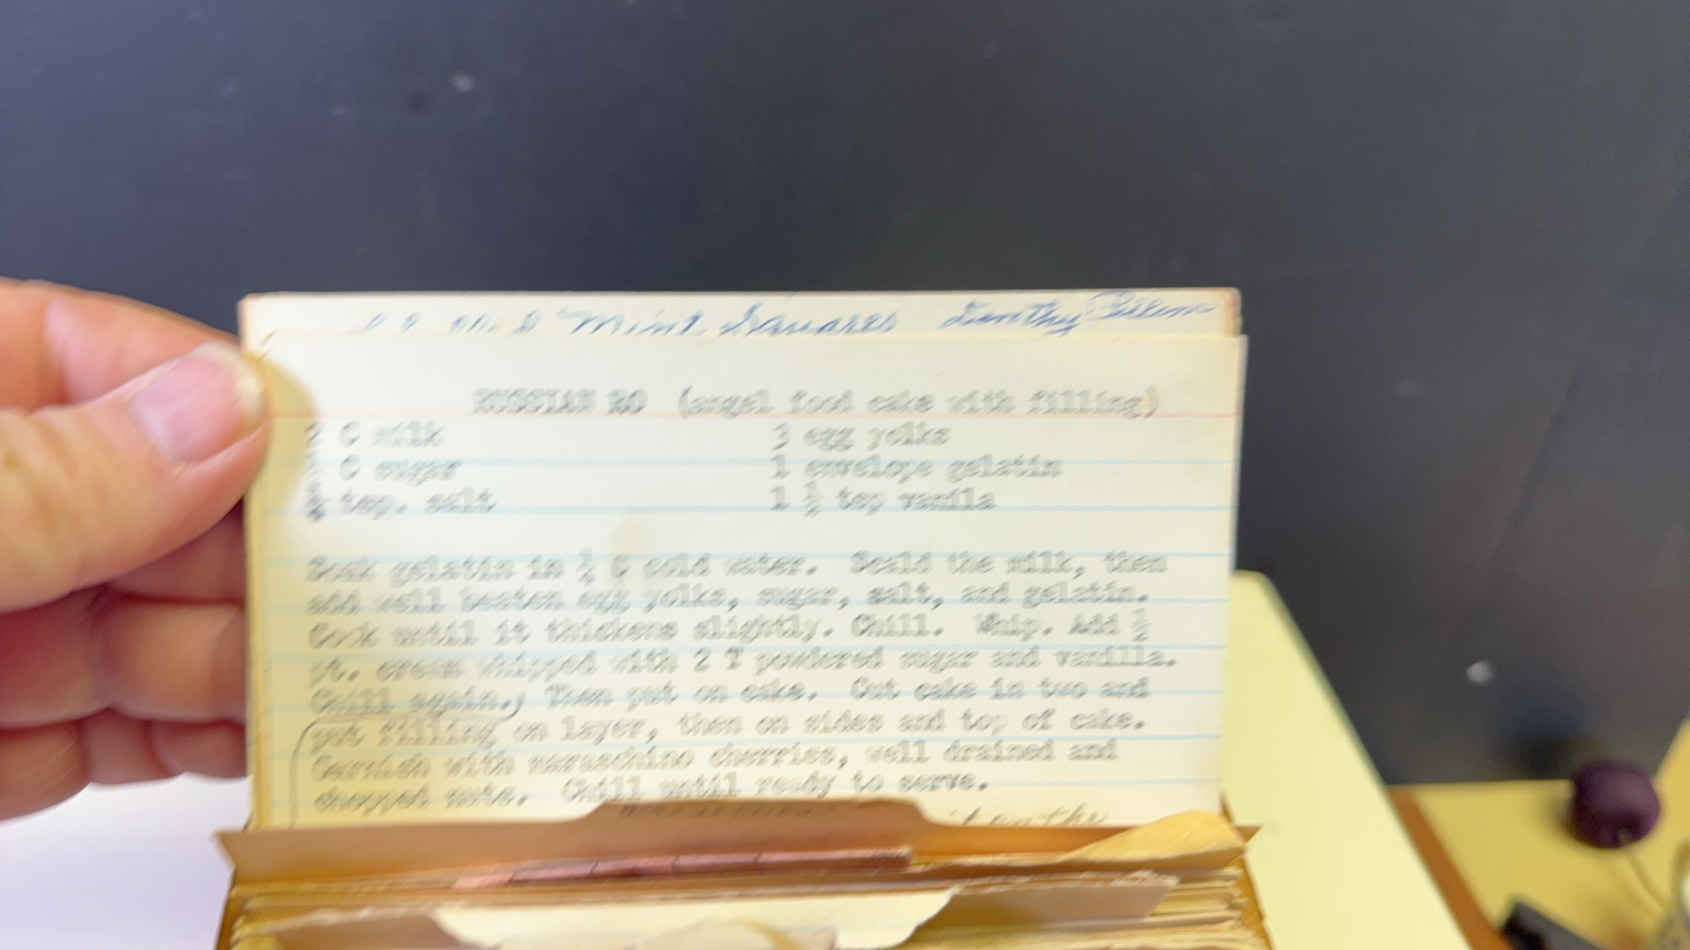 Mint Squares Dorothy
RUSSIAN RO (angel food cake with filling)
2 C milk 3 egg yolks
C sugar 1 envelope gelatin
tsp. salt 1 ½ tsp vanila
Soak gelatin in C cold water. Scald the milk, then
add well beaten egg yolks, sugar, salt, and gelatin.
Cook until it thickens slightly. Chill. Whip. Add ½
pt. cream whipped with 2 T powdered sugar and vanilla.
Chill again. Then put on cake. Cut cake in two and
put filling on layer, then on sides and top of cake.
Garnish with maraschino cherries, well drained and
chopped nuts. Chill until ready to serve.
it on the